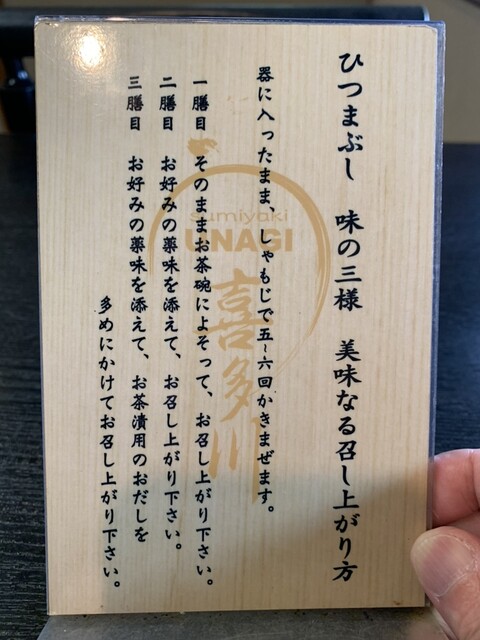 ひつまぶし　味の三様　美味なる召し上がり方
器に入ったまま、しゃもじで五~六回かきまぜます。
一膳目　そのままお茶碗によそって、お召し上がり下さい。
二膳目　お好みの薬味を添えて、お召し上がり下さい。
三膳目　お好みの薬味を添えて、お茶漬用のおだしを
多めにかけてお召し上がり下さい。
sumiyaki
UNAGI
喜多川